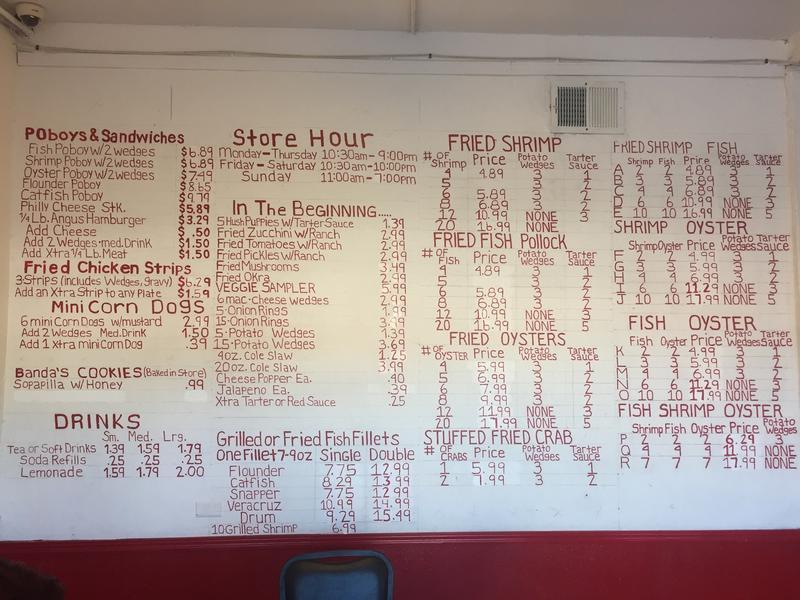 POboys & Sandwiches
Fish Poboy w/2 wedges $6.89
Shrimp Poboy w/2 wedges $6.89
Oyster Poboy w/2 wedges $7.49
Flounder Poboy $8.65
Catfish Poboy $9.79
Philly Cheese Stk. $5.89
1/4 Lb. Angus Hamburger $3.29
Add Cheese $.50
Add 2 Wedges-med. Drink $1.50
Add Xtra 1/4 Lb. Meat $1.50
Fried Chicken Strips
3 Strips (includes Wedges, Gravy) $6.29
Add an Xtra Strip to any Plate $1.59
Mini Corn Dogs
6 mini Corn Dogs w/mustard 2.99
Add 2 Wedges Med. Drink 1.50
Add 1 xtra mini Corn Dog .39
Banda's COOKIES (Baked in Store)
Sopapilla w/Honey .99
DRINKS
Sm. Med. Lrg.
Tea or Soft Drinks 1.39 1.59 1.79
Soda Refills .25 .25 .25
Lemonade 1.59 1.79 2.00
Store Hour
Monday-Thursday 10:30am-9:00pm
Friday-Saturday 10:30am-10:00pm
Sunday 11:00am-7:00pm
In The Beginning.....
5 Hush Puppies w/Tarter Sauce 1.39
Fried Zucchini w/Ranch 2.99
Fried Tomatoes w/Ranch 2.99
Fried Pickles w/Ranch 2.99
Fried Mushrooms 3.49
Fried Okra 2.99
VEGGIE SAMPLER 5.99
6 mac-Cheese Wedges 2.99
5-Onion Rings 1.99
15-Onion Rings
5-Potato Wedges 1.39
15-Potato Wedges 3.69
4oz. Cole Slaw 1.25
20oz. Cole Slaw 3.99
Cheese Popper Ea. .40
Jalapeno Ea. .39
Xtra Tarter or Red Sauce .25
Grilled or Fried Fish Fillets
One Fillet 7-9oz Single Double
Flounder 7.75 12.99
Catfish 8.29 13.99
Snapper 7.75 12.99
Veracruz 10.99 14.99
Drum 9.29 15.49
10 Grilled Shrimp 6.99
FRIED SHRIMP
# OF Shrimp Price Potato Wedges Tarter Sauce
4 4.89 3 1
5 3 2
6 5.89 3 2
8 6.89 3 2
12 10.99 NONE 3
20 16.99 NONE 5
FRIED FISH Pollock
# OF Fish Price Potato Wedges Tarter Sauce
4 4.89 3 1
5 3 2
6 5.89 3 2
8 6.89 3 2
12 10.99 NONE 3
20 16.99 NONE 5
FRIED OYSTERS
# OF OYSTER Price Potato Wedges Tarter Sauce
4 5.99 3 1
5 6.99 3 2
6 7.99 3 2
8 9.99 3 2
12 11.99 NONE 3
20 17.99 NONE 5
STUFFED FRIED CRAB
# OF CRABS Price Potato Wedges Tarter Sauce
1 5.99 3 1
2 7.99 3 2
FRIED SHRIMP FISH
Shrimp Fish Price Potato Wedges Tarter Sauce
A 2 2 4.89 3 1
B 5.89 3 2
C 4 4 6.89 3 2
D 6 6 10.99 NONE 3
E 10 10 16.99 NONE 5
SHRIMP OYSTER
Shrimp Oyster Price Potato Wedges Tarter Sauce
F 2 2 4.99 3 1
G 3 3 5.99 3 2
H 4 4 6.99 3 2
I 6 6 11.29 NONE 3
J 10 10 17.99 NONE 5
FISH OYSTER
Fish Oyster Price Potato Wedges Tarter Sauce
K 2 2 4.99 3 1
L 3 3 5.99 3 2
M 4 4 6.99 3 2
N 6 6 11.29 NONE 3
O 10 10 17.99 NONE 5
FISH SHRIMP OYSTER
Shrimp Fish Oyster Price Potato Wedges
P 2 2 2 6.29 3
Q 4 4 4 11.99 NONE
R 7 7 7 17.99 NONE